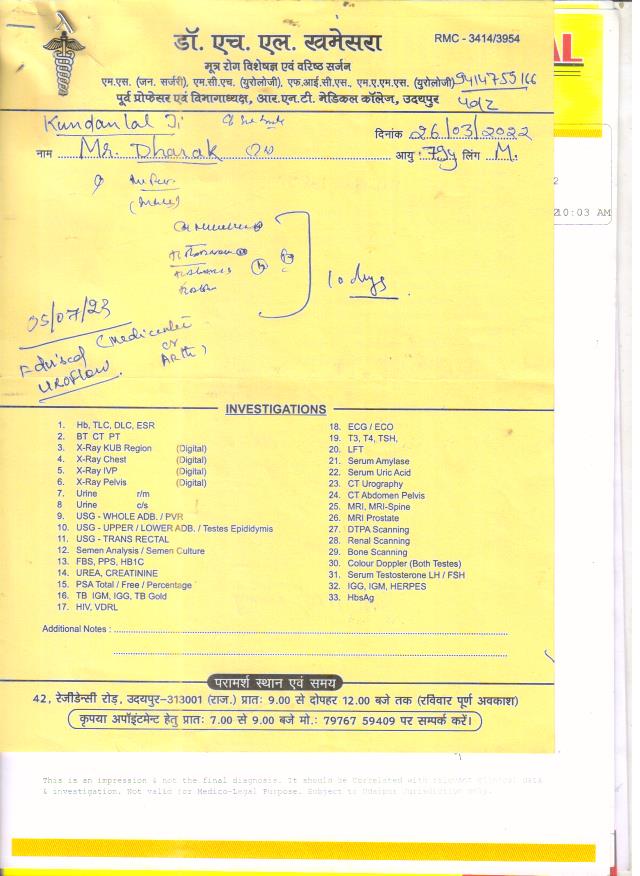 डॉ. एच. एल. खमेसरा
RMC - 3414/3954
AL
मूत्र रोग विशेषज्ञ एवं वरिष्ठ सर्जन
एम.एस. (जन. सर्जरी), एम.सी.एच. (युरोलोजी), एफ.आई.सी.एस., एम.ए.एम.एस. (युरोलोजी)
9414755166
पूर्व प्रोफेसर एवं विभागाध्यक्ष, आर.एन.टी. मेडिकल कॉलेज, उदयपुर
Kundanlal Ji
दिनांक 26/03/2022
नाम Mr. Dharak
आयु 79y लिंग M.
2
10:03 AM
10 days.
05/07/23
Advised (Medicenter
or
Arth)
UROFLOW
INVESTIGATIONS
1. Hb, TLC, DLC, ESR
2. BT CT PT
3. X-Ray KUB Region (Digital)
4. X-Ray Chest (Digital)
5. X-Ray IVP (Digital)
6. X-Ray Pelvis (Digital)
7. Urine r/m
8 Urine c/s
9. USG - WHOLE ADB. / PVR
10. USG - UPPER / LOWER ADB. / Testes Epididymis
11. USG - TRANS RECTAL
12. Semen Analysis / Semen Culture
13. FBS, PPS, HB1C
14. UREA, CREATININE
15. PSA Total / Free / Percentage
16. TB IGM, IGG, TB Gold
17. HIV, VDRL
18. ECG / ECO
19. T3, T4, TSH,
20. LFT
21. Serum Amylase
22. Serum Uric Acid
23. CT Urography
24. CT Abdomen Pelvis
25. MRI, MRI-Spine
26. MRI Prostate
27. DTPA Scanning
28. Renal Scanning
29. Bone Scanning
30. Colour Doppler (Both Testes)
31. Serum Testosterone LH / FSH
32. IGG, IGM, HERPES
33. HbsAg
Additional Notes :
परामर्श स्थान एवं समय
42, रेजीडेन्सी रोड़, उदयपुर-313001 (राज.) प्रातः 9.00 से दोपहर 12.00 बजे तक (रविवार पूर्ण अवकाश)
कृपया अपॉइंटमेन्ट हेतु प्रातः 7.00 से 9.00 बजे मो.: 79767 59409 पर सम्पर्क करें।
This is an impression & not the final diagnosis. It should be Correlated with relevant Clinical data
& investigation. Not valid for Medico-Legal Purpose. Subject to Udaipur Jurisdiction only.